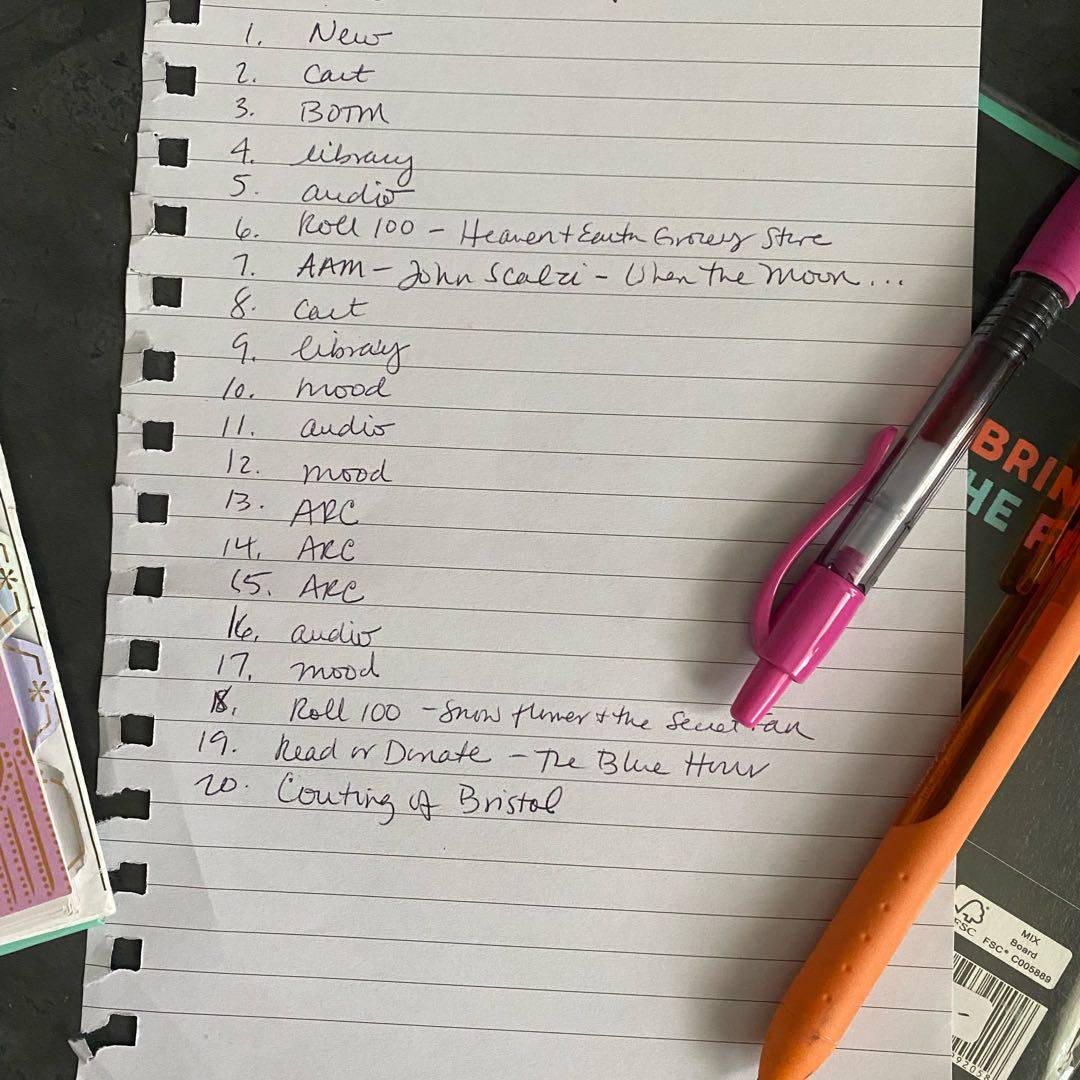 1. New
2. Cart
3. BOTM
4. library
5. audio
6. Roll 100 - Heaven + Earth Grocery Store
7. AAM - John Scalzi - When the Moon...
8. Cart
9. library
10. mood
11. audio
12. mood
13. ARC
14. ARC
15. ARC
16. audio
17. mood
18. Roll 100 - Snow flower + the Secret Fan
19. Read or Donate - The Blue Hour
20. Couting of Bristol
BRIN
HE F
FSC
MIX
Board
FSC® C005889